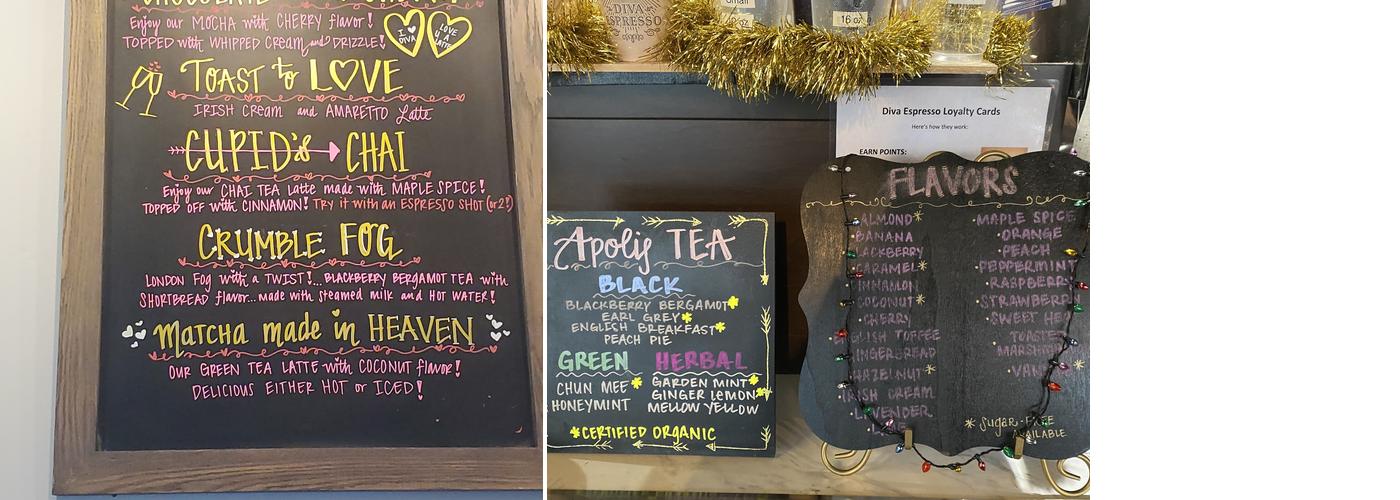 Enjoy our MOCHA with CHERRY flavor!
TOPPED with WHIPPED CREAM and DRIZZLE!
I DIVA
LOVE A LATTE
TOAST to LOVE
IRISH CREAM and AMARETTO Latte
CUPID's CHAI
Enjoy our CHAI TEA Latte made with MAPLE SPICE!
TOPPED OFF with CINNAMON! TRY it with an ESPRESSO SHOT (or 2!)
CRUMBLE FOG
LONDON FOG with a TWIST!... BLACKBERRY BERGAMOT TEA with
SHORTBREAD flavor... made with steamed milk and HOT WATER!
Matcha made in HEAVEN
OUR GREEN TEA LATTE with COCONUT flavor!
DELICIOUS EITHER HOT or ICED!
DIVA
ESPRESSO
small
16 oz
Diva Espresso Loyalty Cards
Here's how they work:
EARN POINTS:
Apolis TEA
BLACK
BLACKBERRY BERGAMOT*
EARL GREY*
ENGLISH BREAKFAST*
PEACH PIE
GREEN
CHUN MEE*
HONEYMINT
HERBAL
GARDEN MINT*
GINGER LEMON*
MELLOW YELLOW
*CERTIFIED ORGANIC
FLAVORS
ALMOND*
BANANA
BLACKBERRY
CARAMEL*
CINNAMON
COCONUT*
CHERRY
ENGLISH TOFFEE
GINGERBREAD
HAZELNUT*
IRISH CREAM
LAVENDER
MAPLE SPICE
ORANGE
PEACH
PEPPERMINT
RASPBERRY
STRAWBERRY
SWEET
TOASTED
MARSHMALLOW
* Sugar-FREE
AVAILABLE